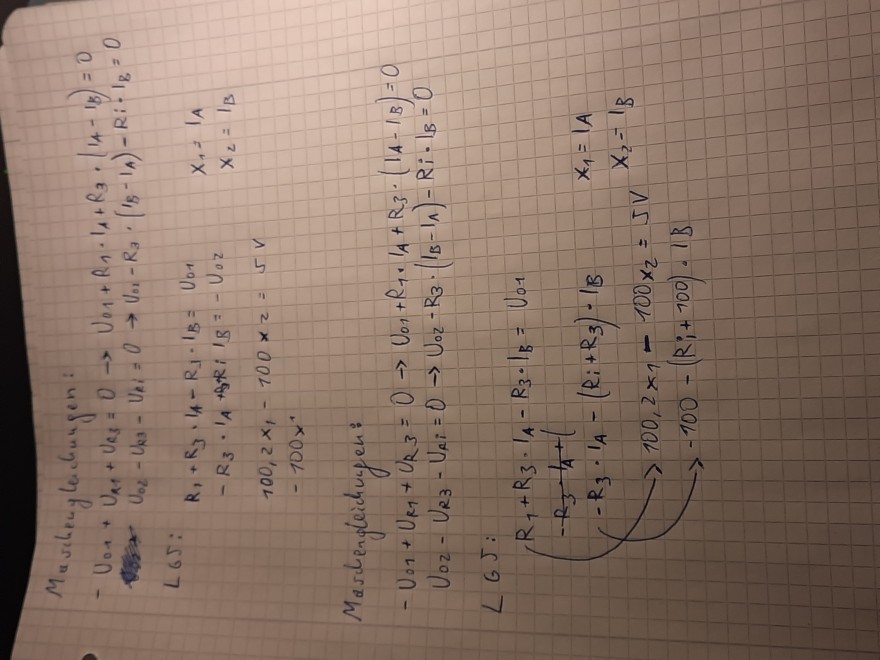 Maschengleichungen:
- U01 + UR1 + UR3 = 0 → U01 + R1 · IA + R3 · (IA - IB) = 0
U02 - UR3 - URi = 0 → U02 - R3 · (IB - IA) - Ri · IB = 0
LGS:
R1 + R3 · IA - R3 · IB = U01
x1 = IA
- R3 · IA + Ri IB = - U02
x2 = IB
100,2x1 - 100x2 = 5V
- 100x
Maschengleichungen:
- U01 + UR1 + UR3 = 0 → U01 + R1 · IA + R3 · (IA - IB) = 0
U02 - UR3 - URi = 0 → U02 - R3 · (IB - IA) - Ri · IB = 0
LGS:
R1 + R3 · IA - R3 · IB = U01
- R3 · IA + (
- R3 · IA - (Ri + R3) · IB
x1 = IA
x2 = IB
→ 100,2x1 - 100x2 = 5V
→ -100 - (Ri + 100) · IB